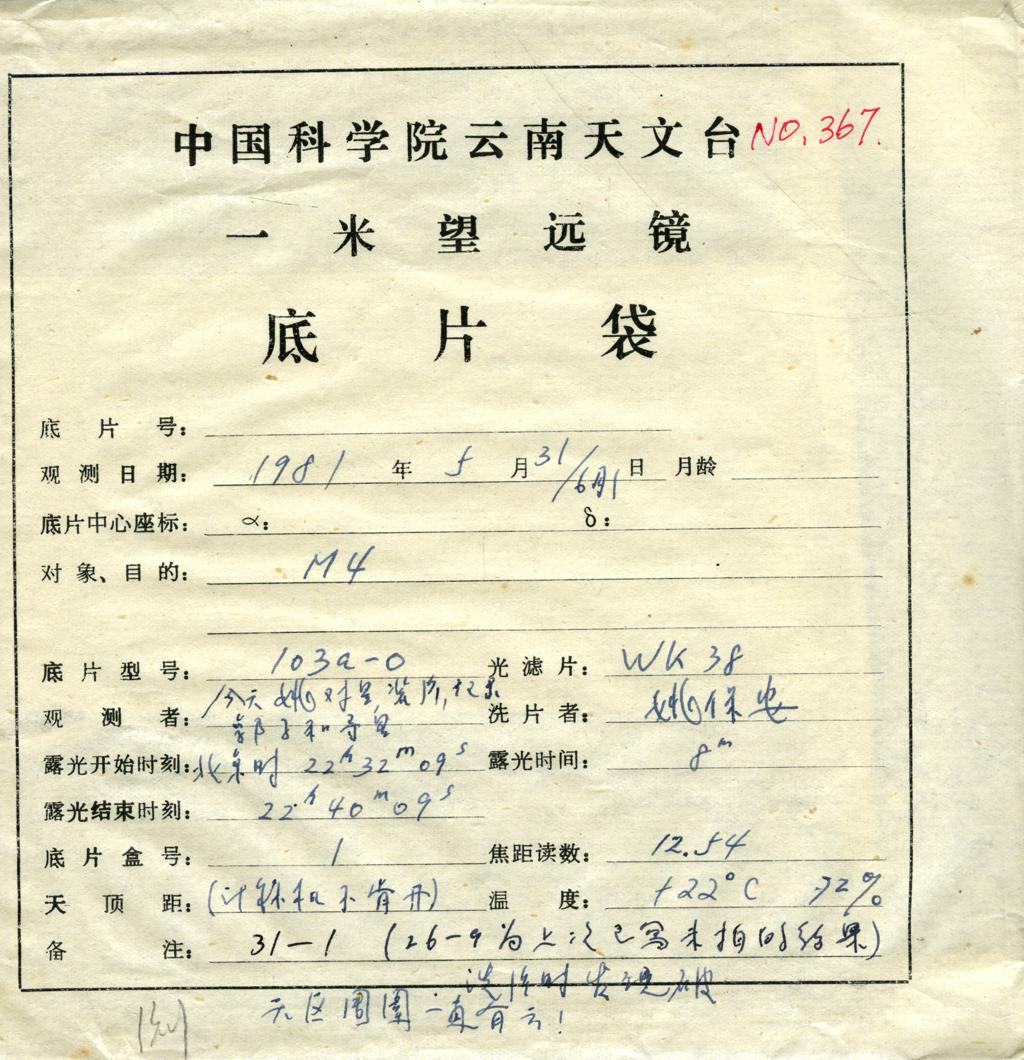 中国科学院云南天文台 NO.367.
一米望远镜
底片袋
底片号：
观测日期： 1981 年 5 月 31/6月1 日 月龄
底片中心座标： α： δ：
对象、目的： M4
底片型号： 103a-O 光滤片： WK 38
今天姚对星,装片,记录
观测者： 郭子和寻星 洗片者： 姚保安
露光开始时刻： 北京时 22h32m09s 露光时间： 8m
露光结束时刻： 22h40m09s
底片盒号： 1 焦距读数： 12.54
天顶距： (计算机不肯开) 温度： +22°C 72%
备注： 31-1 (26-9为上次已写未拍的结果)
洗片时发现破
天区周围一直有云!